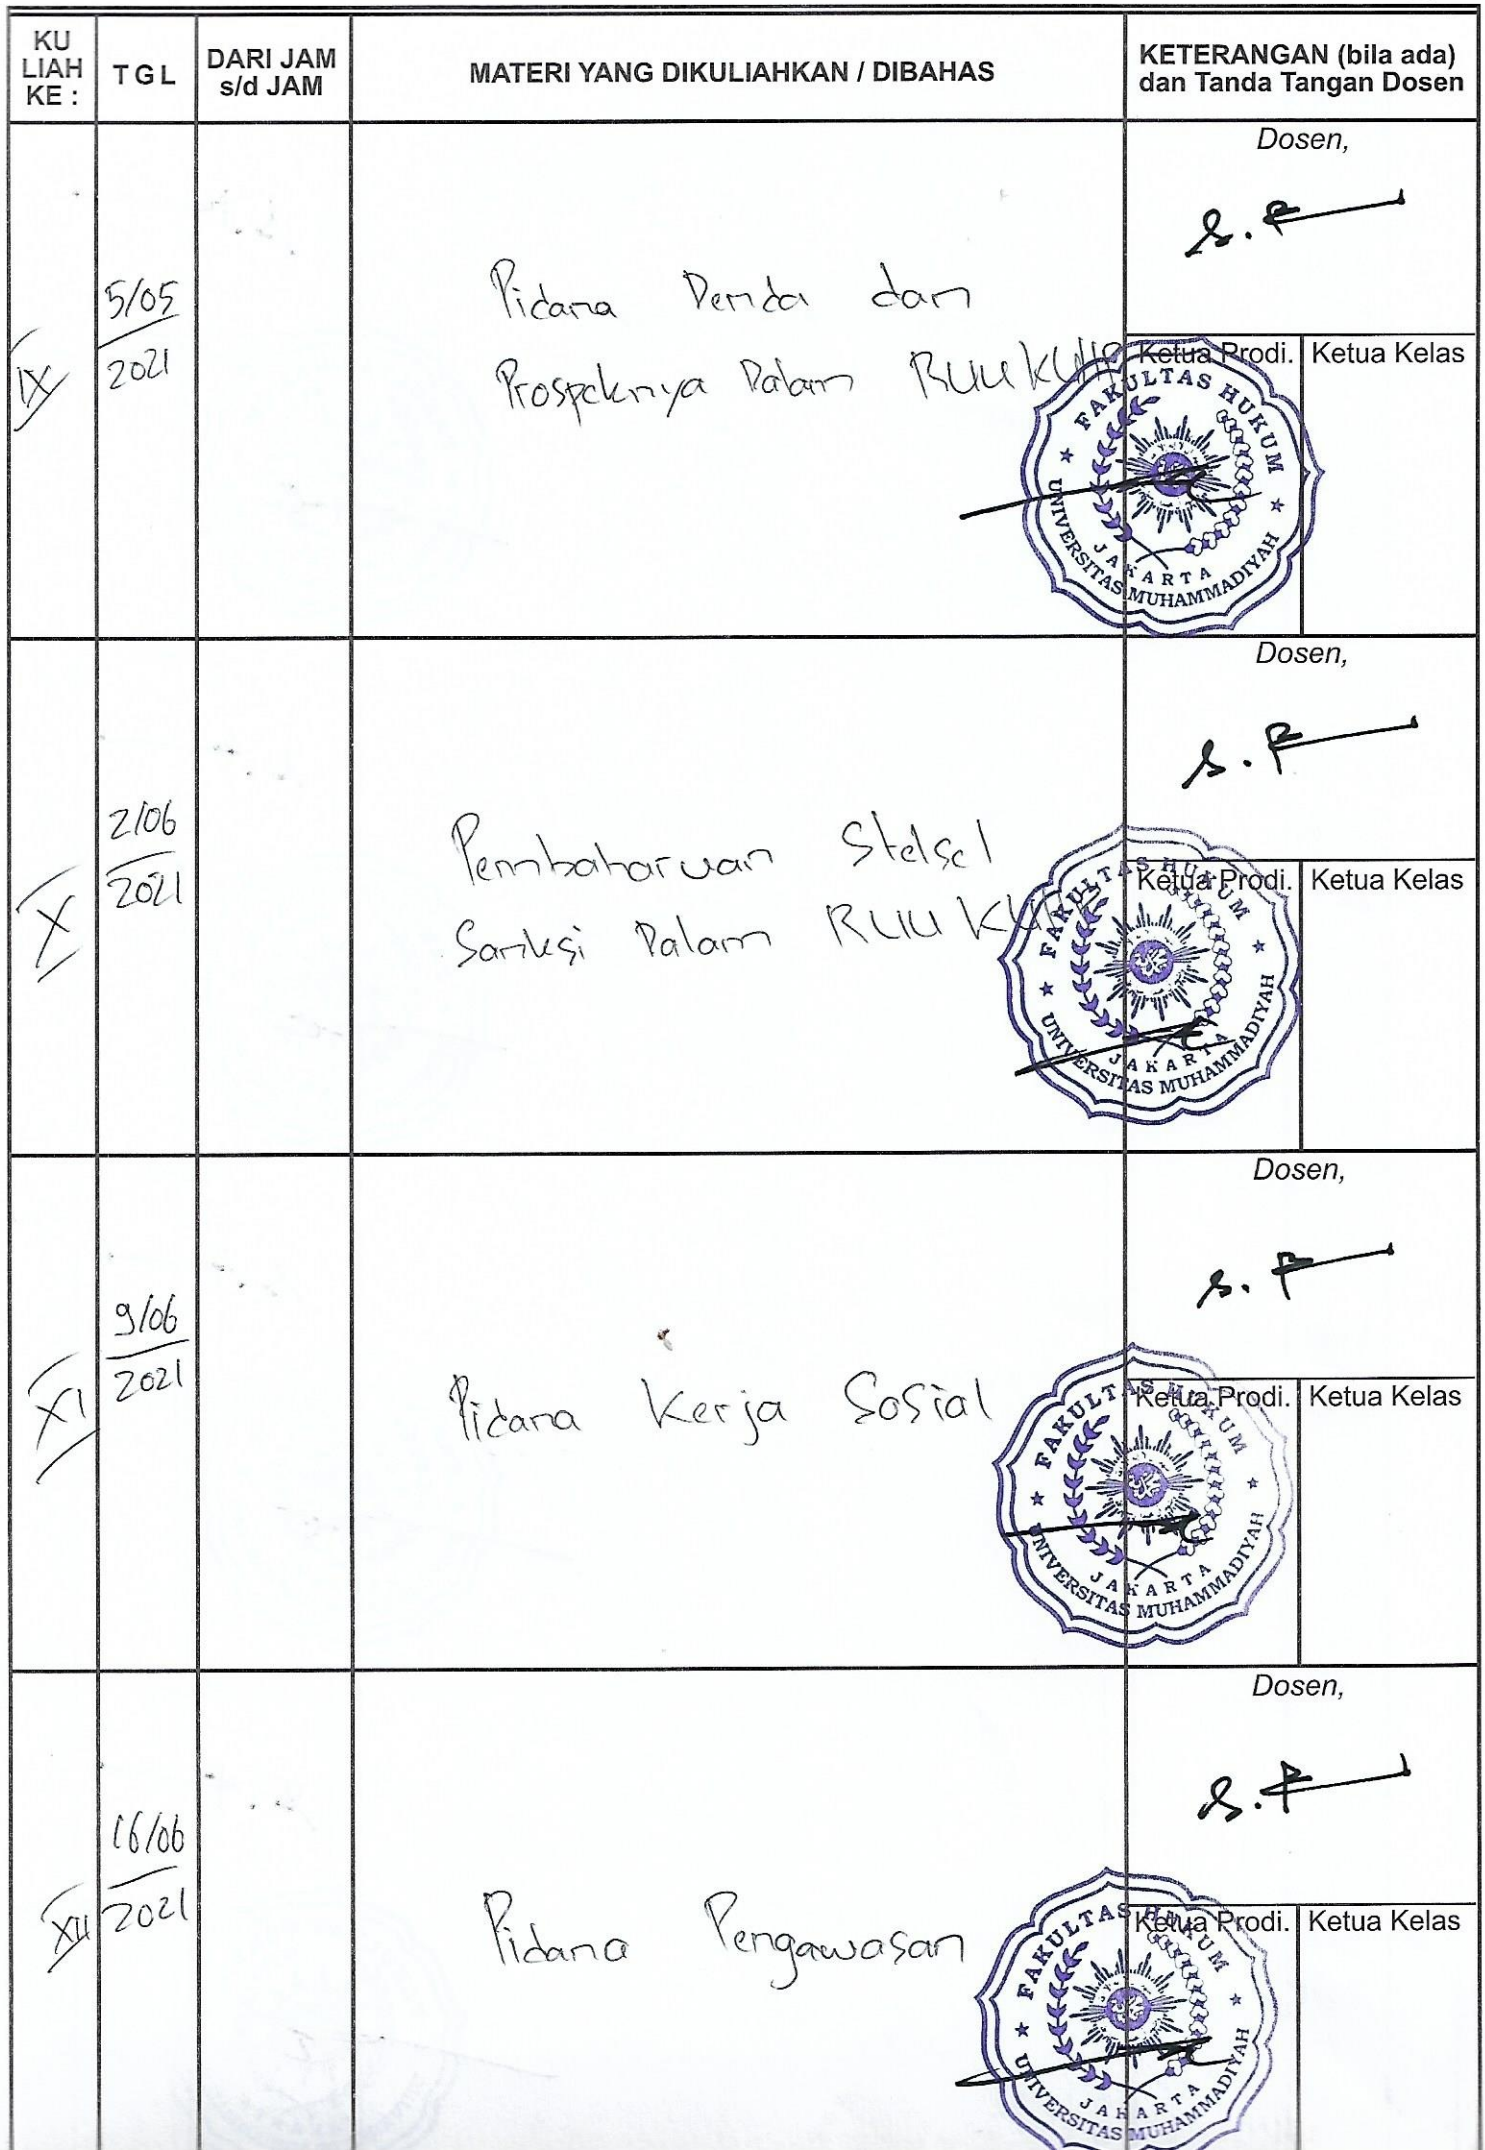 KU LIAH KE :
TGL
DARI JAM s/d JAM
MATERI YANG DIKULIAHKAN / DIBAHAS
KETERANGAN (bila ada)
dan Tanda Tangan Dosen
IX
5/05
2021
Pidana Denda dan
Prospeknya Dalam RUU KUHP
Dosen,
S. R
Ketua Prodi.
Ketua Kelas
FAKULTAS HUKUM
JAKARTA
UNIVERSITAS MUHAMMADIYAH
X
2/06
2021
Pembaharuan Stelsel
Sanksi Dalam RUU KUHP
Dosen,
S. R
Ketua Prodi.
Ketua Kelas
FAKULTAS HUKUM
JAKARTA
UNIVERSITAS MUHAMMADIYAH
XI
9/06
2021
Pidana Kerja Sosial
Dosen,
S. R
Ketua Prodi.
Ketua Kelas
FAKULTAS HUKUM
JAKARTA
UNIVERSITAS MUHAMMADIYAH
XII
16/06
2021
Pidana Pengawasan
Dosen,
S. R
Ketua Prodi.
Ketua Kelas
FAKULTAS HUKUM
JAKARTA
UNIVERSITAS MUHAMMADIYAH